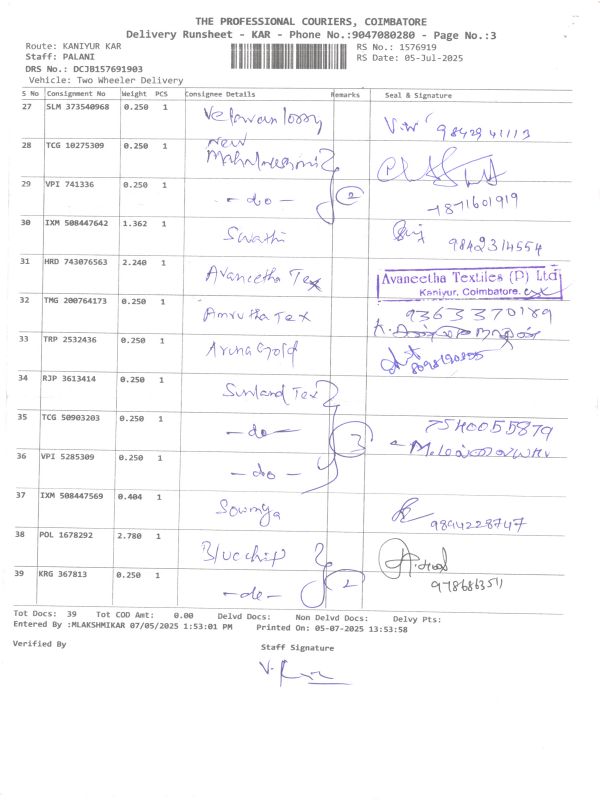 THE PROFESSIONAL COURIERS, COIMBATORE
Delivery Runsheet - KAR - Phone No.:9047080280 - Page No.:3
Route: KANIYUR KAR RS No.: 1576919
Staff: PALANI RS Date: 05-Jul-2025
DRS No.: DCJB157691903
Vehicle: Two Wheeler Delivery
S No Consignment No Weight PCS Consignee Details Remarks Seal & Signature
27 SLM 373540968 0.250 1 lorry 9842941113
28 TCG 10275309 0.250 1 New
29 VPI 741336 0.250 1 - do - 2 7871601919
30 IXM 508447642 1.362 1 Swathi 9842314554
31 HRD 743076563 2.240 1 Avaneetha Tex Avaneetha Textiles (P) Ltd
Kaniyur, Coimbatore.
32 TMG 200764173 0.250 1 Amrutha Tex 9363370189
33 TRP 2532436 0.250 1 Aruna Gold
34 RJP 3613414 0.250 1 Sunland Tex
35 TCG 50903203 0.250 1 - do - 3 7540055879
36 VPI 5285309 0.250 1 - do -
37 IXM 508447569 0.404 1 Sowmya 9894228747
38 POL 1678292 2.780 1 Bluechip
39 KRG 367813 0.250 1 - do -
Tot Docs: 39 Tot COD Amt: 0.00 Delvd Docs: Non Delvd Docs: Delvy Pts:
Entered By :MLAKSHMIKAR 07/05/2025 1:53:01 PM Printed On: 05-07-2025 13:53:58
Verified By Staff Signature